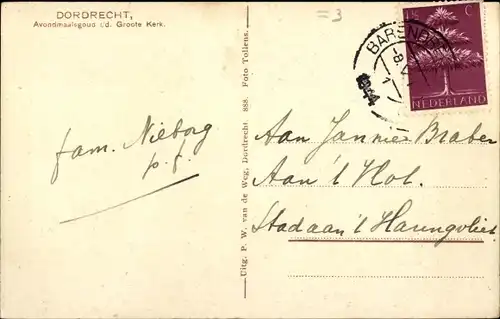 DORDRECHT,
Avondmaalsgoud i/d. Groote Kerk.
=3
BAREND
-8.
1
1944
C
NEDERLAND
fam. Nieborg
p.f.
Uitg. P. W. van de Weg, Dordrecht. 888. Foto Tollens.
Aan Jannie Braber
Aan 't Hof.
Stad aan 't Haringvliet